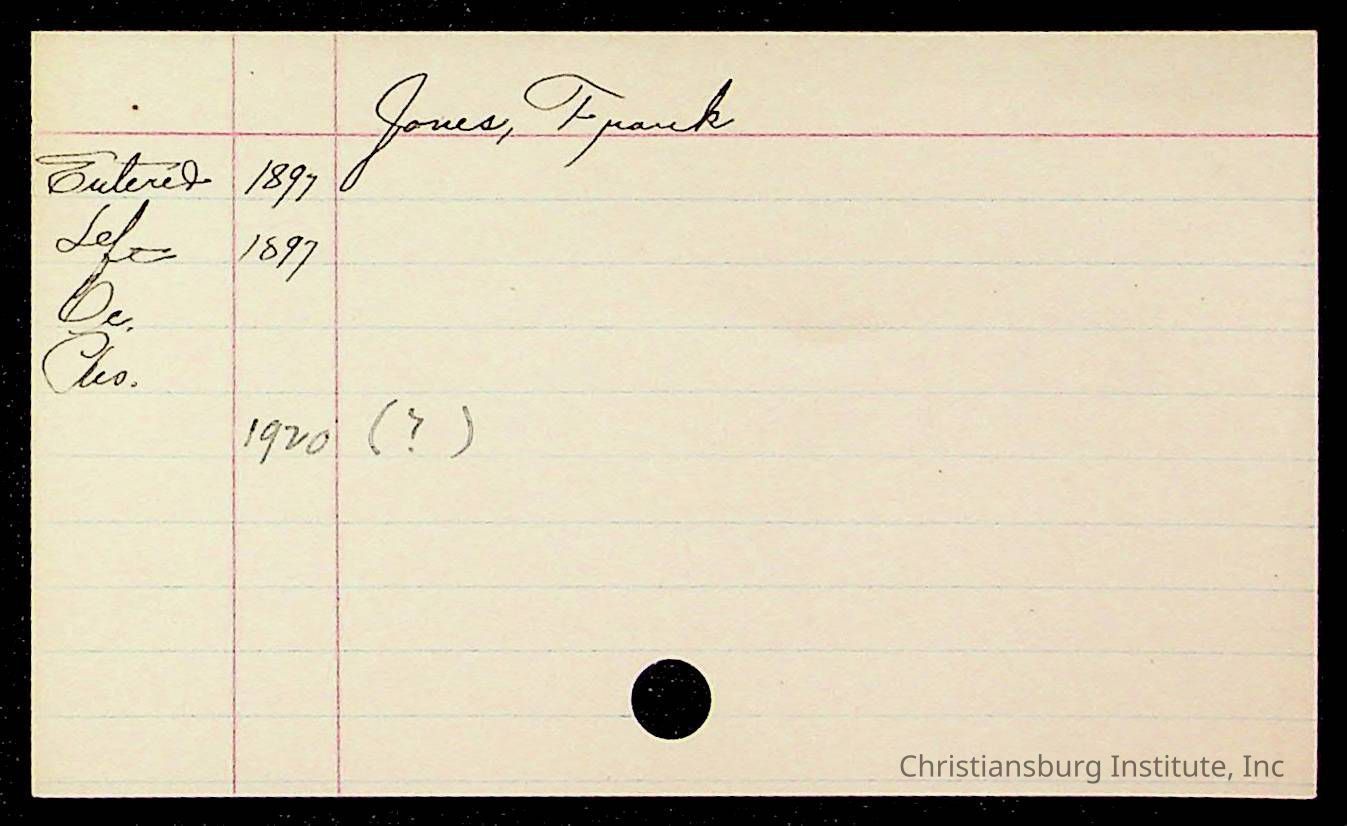 Jones, Frank
Entered 1897
Left 1897
Oc.
Chs.
1920 (?)
Christiansburg Institute, Inc